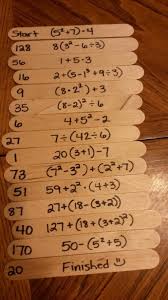 Start (5²+7)·4
128 8(3²-6÷3)
56 1+5·3
16 2+(5-1³+9÷3)
9 (8·2²)+3
35 (8-2)²÷6
6 4+5²-2
27 7÷(42÷6)
1 20(3+1)-7
73 (7²-3²)+(2²+7)
51 59+2²·(4+3)
87 27+(18-(3+2))
40 127+(18+(3+2)²)
170 50-(5²+5)
20 Finished ☺